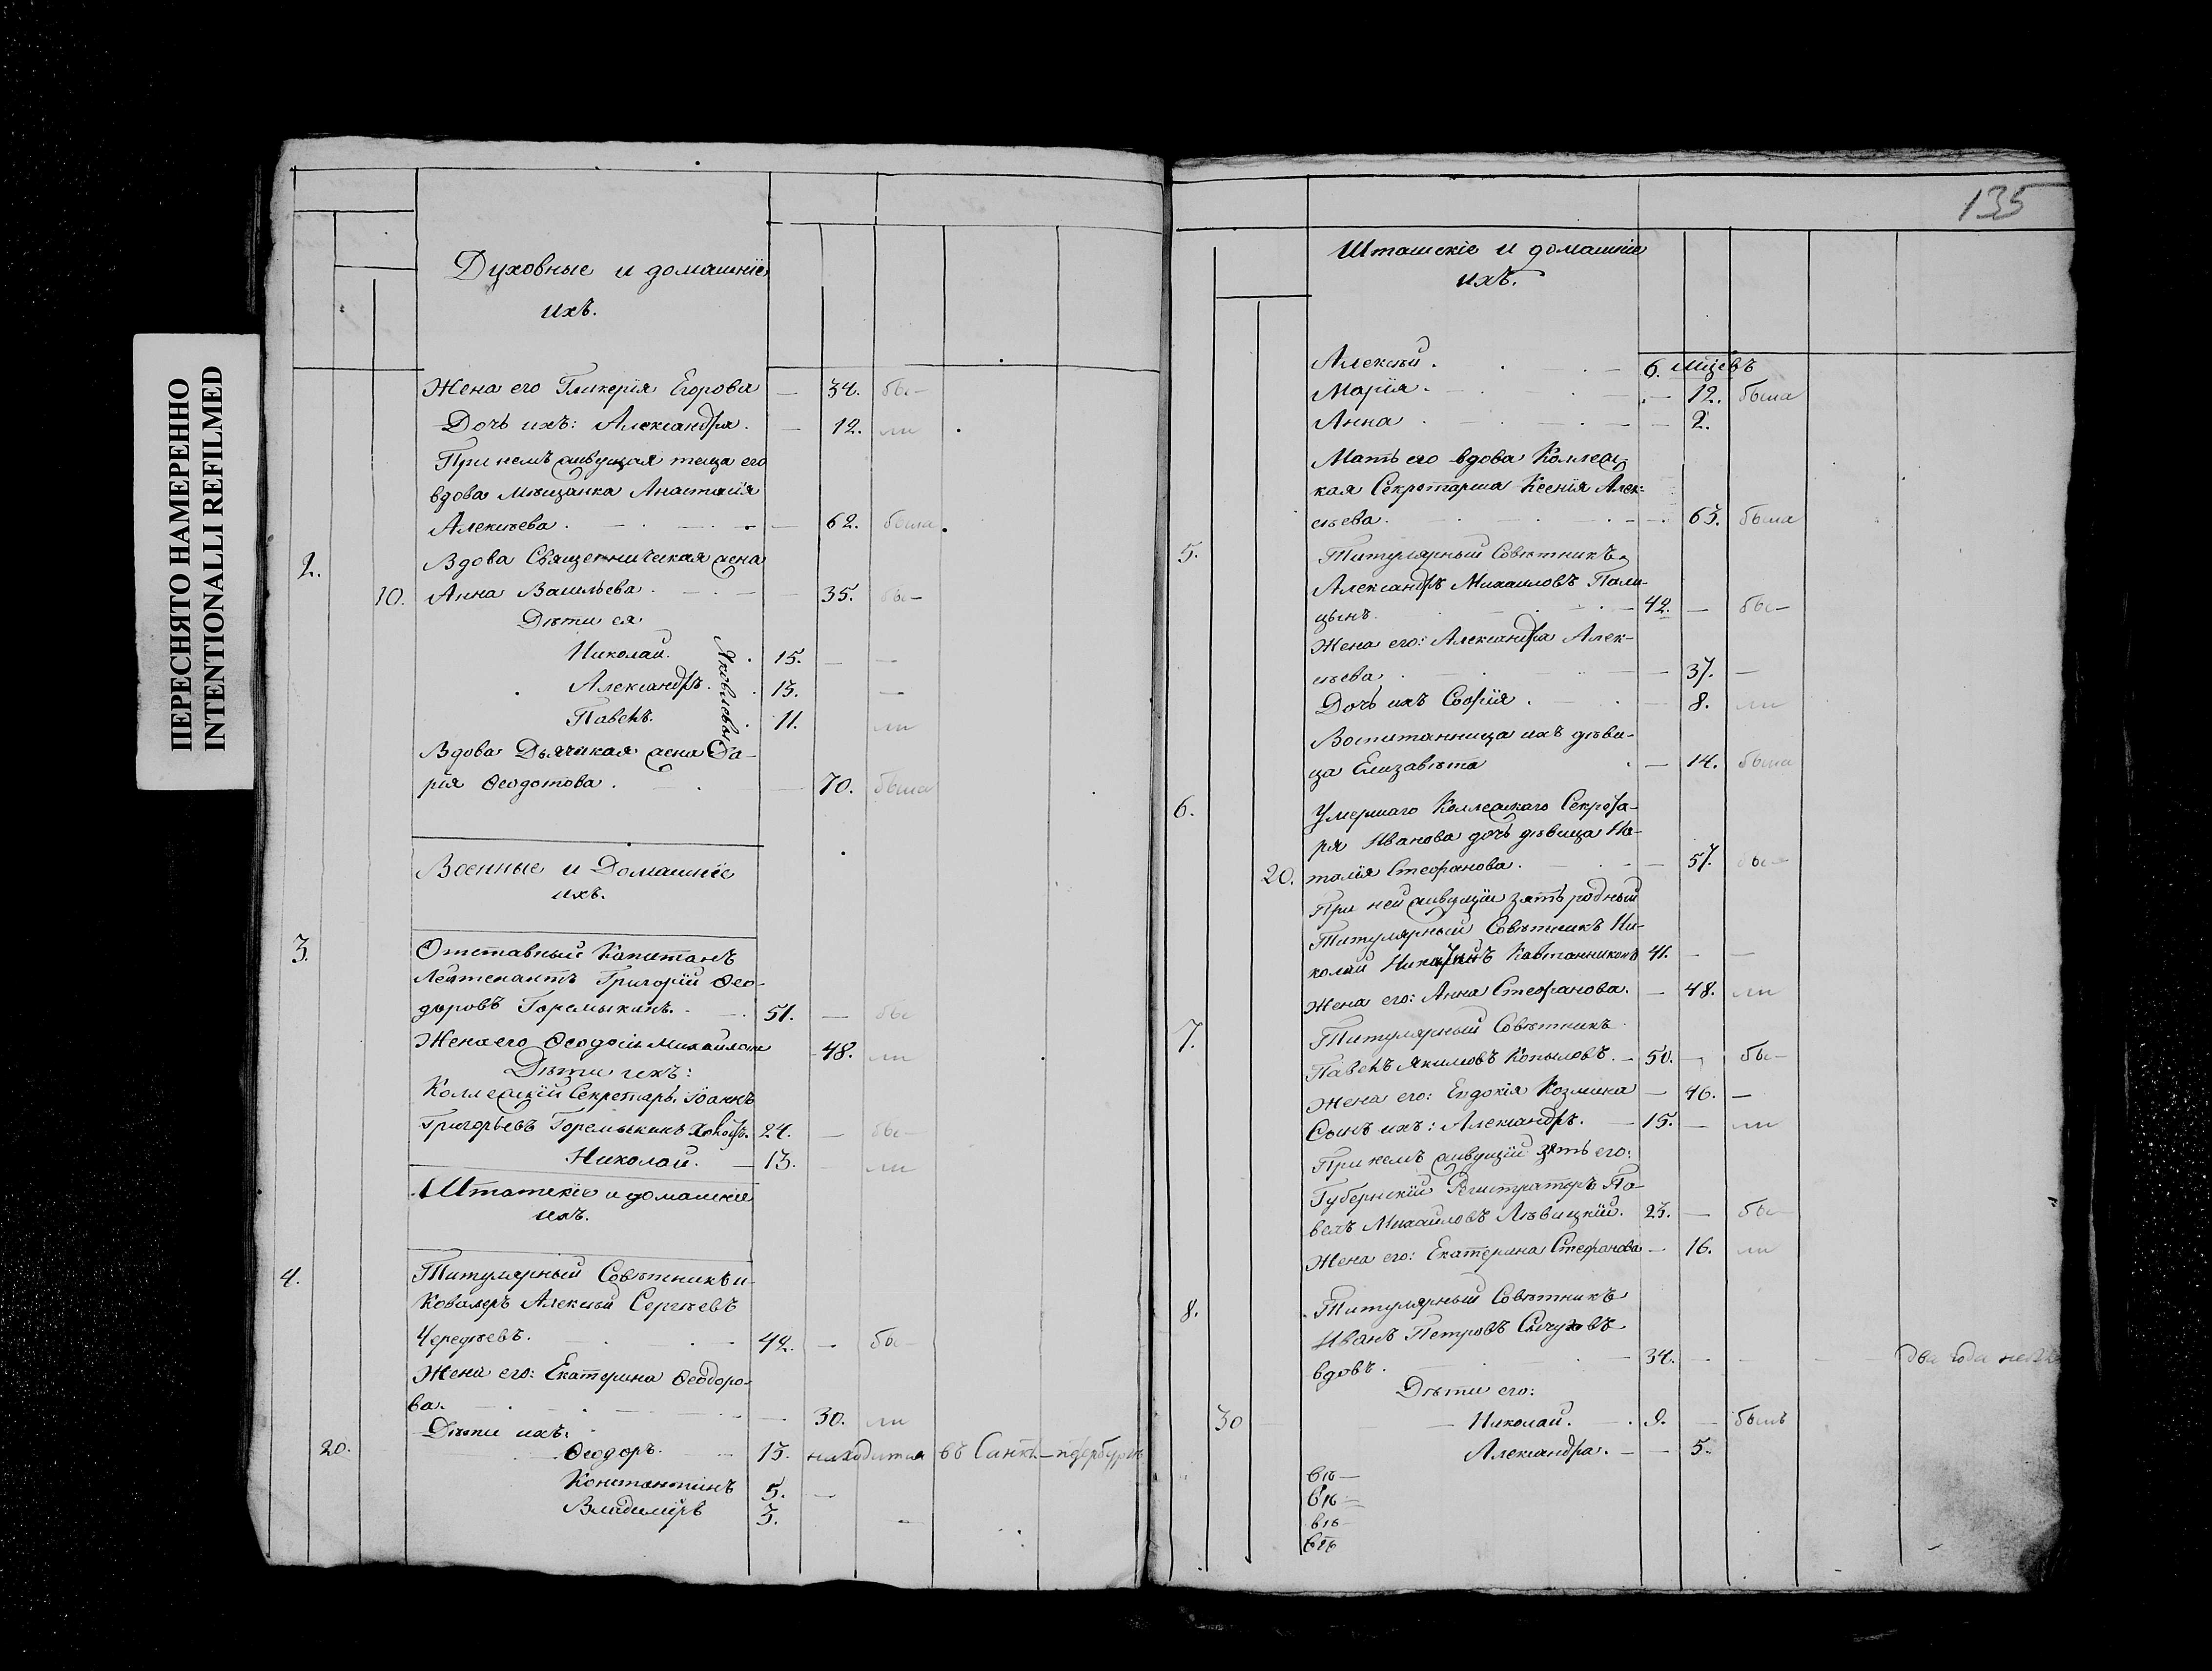 ПЕРЕСНЯТО НАМЕРЕННО
INTENTIONALLI REFILMED
Духовные и домашніе
ихъ.
Жена его Гликерія Егорова — 34. бы-
Дочь ихъ: Александра. — 12. ли
При немъ живущая теща его
вдова мѣщанка Анастасія
Алексѣева. — 62. была
2. Вдова Священническая жена
10. Анна Васильева. — 35. бы-
Дѣти ея
Николай. 15. — —
Александръ. 13. —
Павелъ. 11. ли
Яковлевы
Вдова Дьяческая жена Да-
рія Ѳеодотова. — 70. была
Военные и Домашніе
ихъ.
3. Отставный Капитанъ
Лейтенантъ Григорій Ѳео-
доровъ Горемыкинъ. 51. — бы
Жена его Ѳеодосія Михайлова 48. ли
Дѣти ихъ:
Коллежскій Секретарь Іоаннъ
Григорьевъ Горемыкинъ холостъ. 24. — бы-
Николай. — 13. — ли
Штатскіе и домашніе
ихъ.
4. Титулярный Совѣтникъ и
Кавалеръ Алексѣй Сергѣевъ
Чередѣевъ. 42. — бы-
Жена его: Екатерина Ѳеодоро-
ва. — 30. ли
Дѣти ихъ:
20. Ѳеодоръ. — 13. находится въ Санкт-петербургѣ
Константинъ 5. —
Владиміръ 3. —
135
Штатскіе и домашніе
ихъ.
Алексѣй. — 6. мѣсцевъ
Марія. — 12. была
Анна — 2.
Мать его вдова Коллеж-
кая Секретарша Ксенія Алек-
сѣева. — 63. была
5. Титулярный Совѣтникъ
Александръ Михайловъ Пали-
цынъ. — 42. — бы-
Жена его: Александра Алек-
сѣева — 37. —
Дочь ихъ Софія. — 8. ли
Воспитанница ихъ дѣви-
ца Елизавѣта — 14. была
6. Умершаго Коллежскаго Секрета-
ря Иванова дочь дѣвица На-
20. талія Стефанова. — 57. бы-
При ней живущій зять родный
Титулярный Совѣтникъ Ни-
колай Кавтанниковъ 41. — —
Жена его: Анна Стефанова. — 48. ли
7. Титулярный Совѣтникъ
Павелъ Якимовъ Копыловъ. — 50. — бы-
Жена его: Евдокія Козмина — 46. —
Сынъ ихъ: Александръ. — 15. — ли
При немъ живущій зять его:
Губернскій Регистраторъ Па-
велъ Михайловъ Лѣвицкій. 23. — бы-
Жена его: Екатерина Стефанова — 16. ли
8. Титулярный Совѣтникъ
Иванъ Петровъ
вдовъ. — 34. — — — два года
Дѣти его:
30 — Николай. — 9. — былъ
Александра. — — 5.